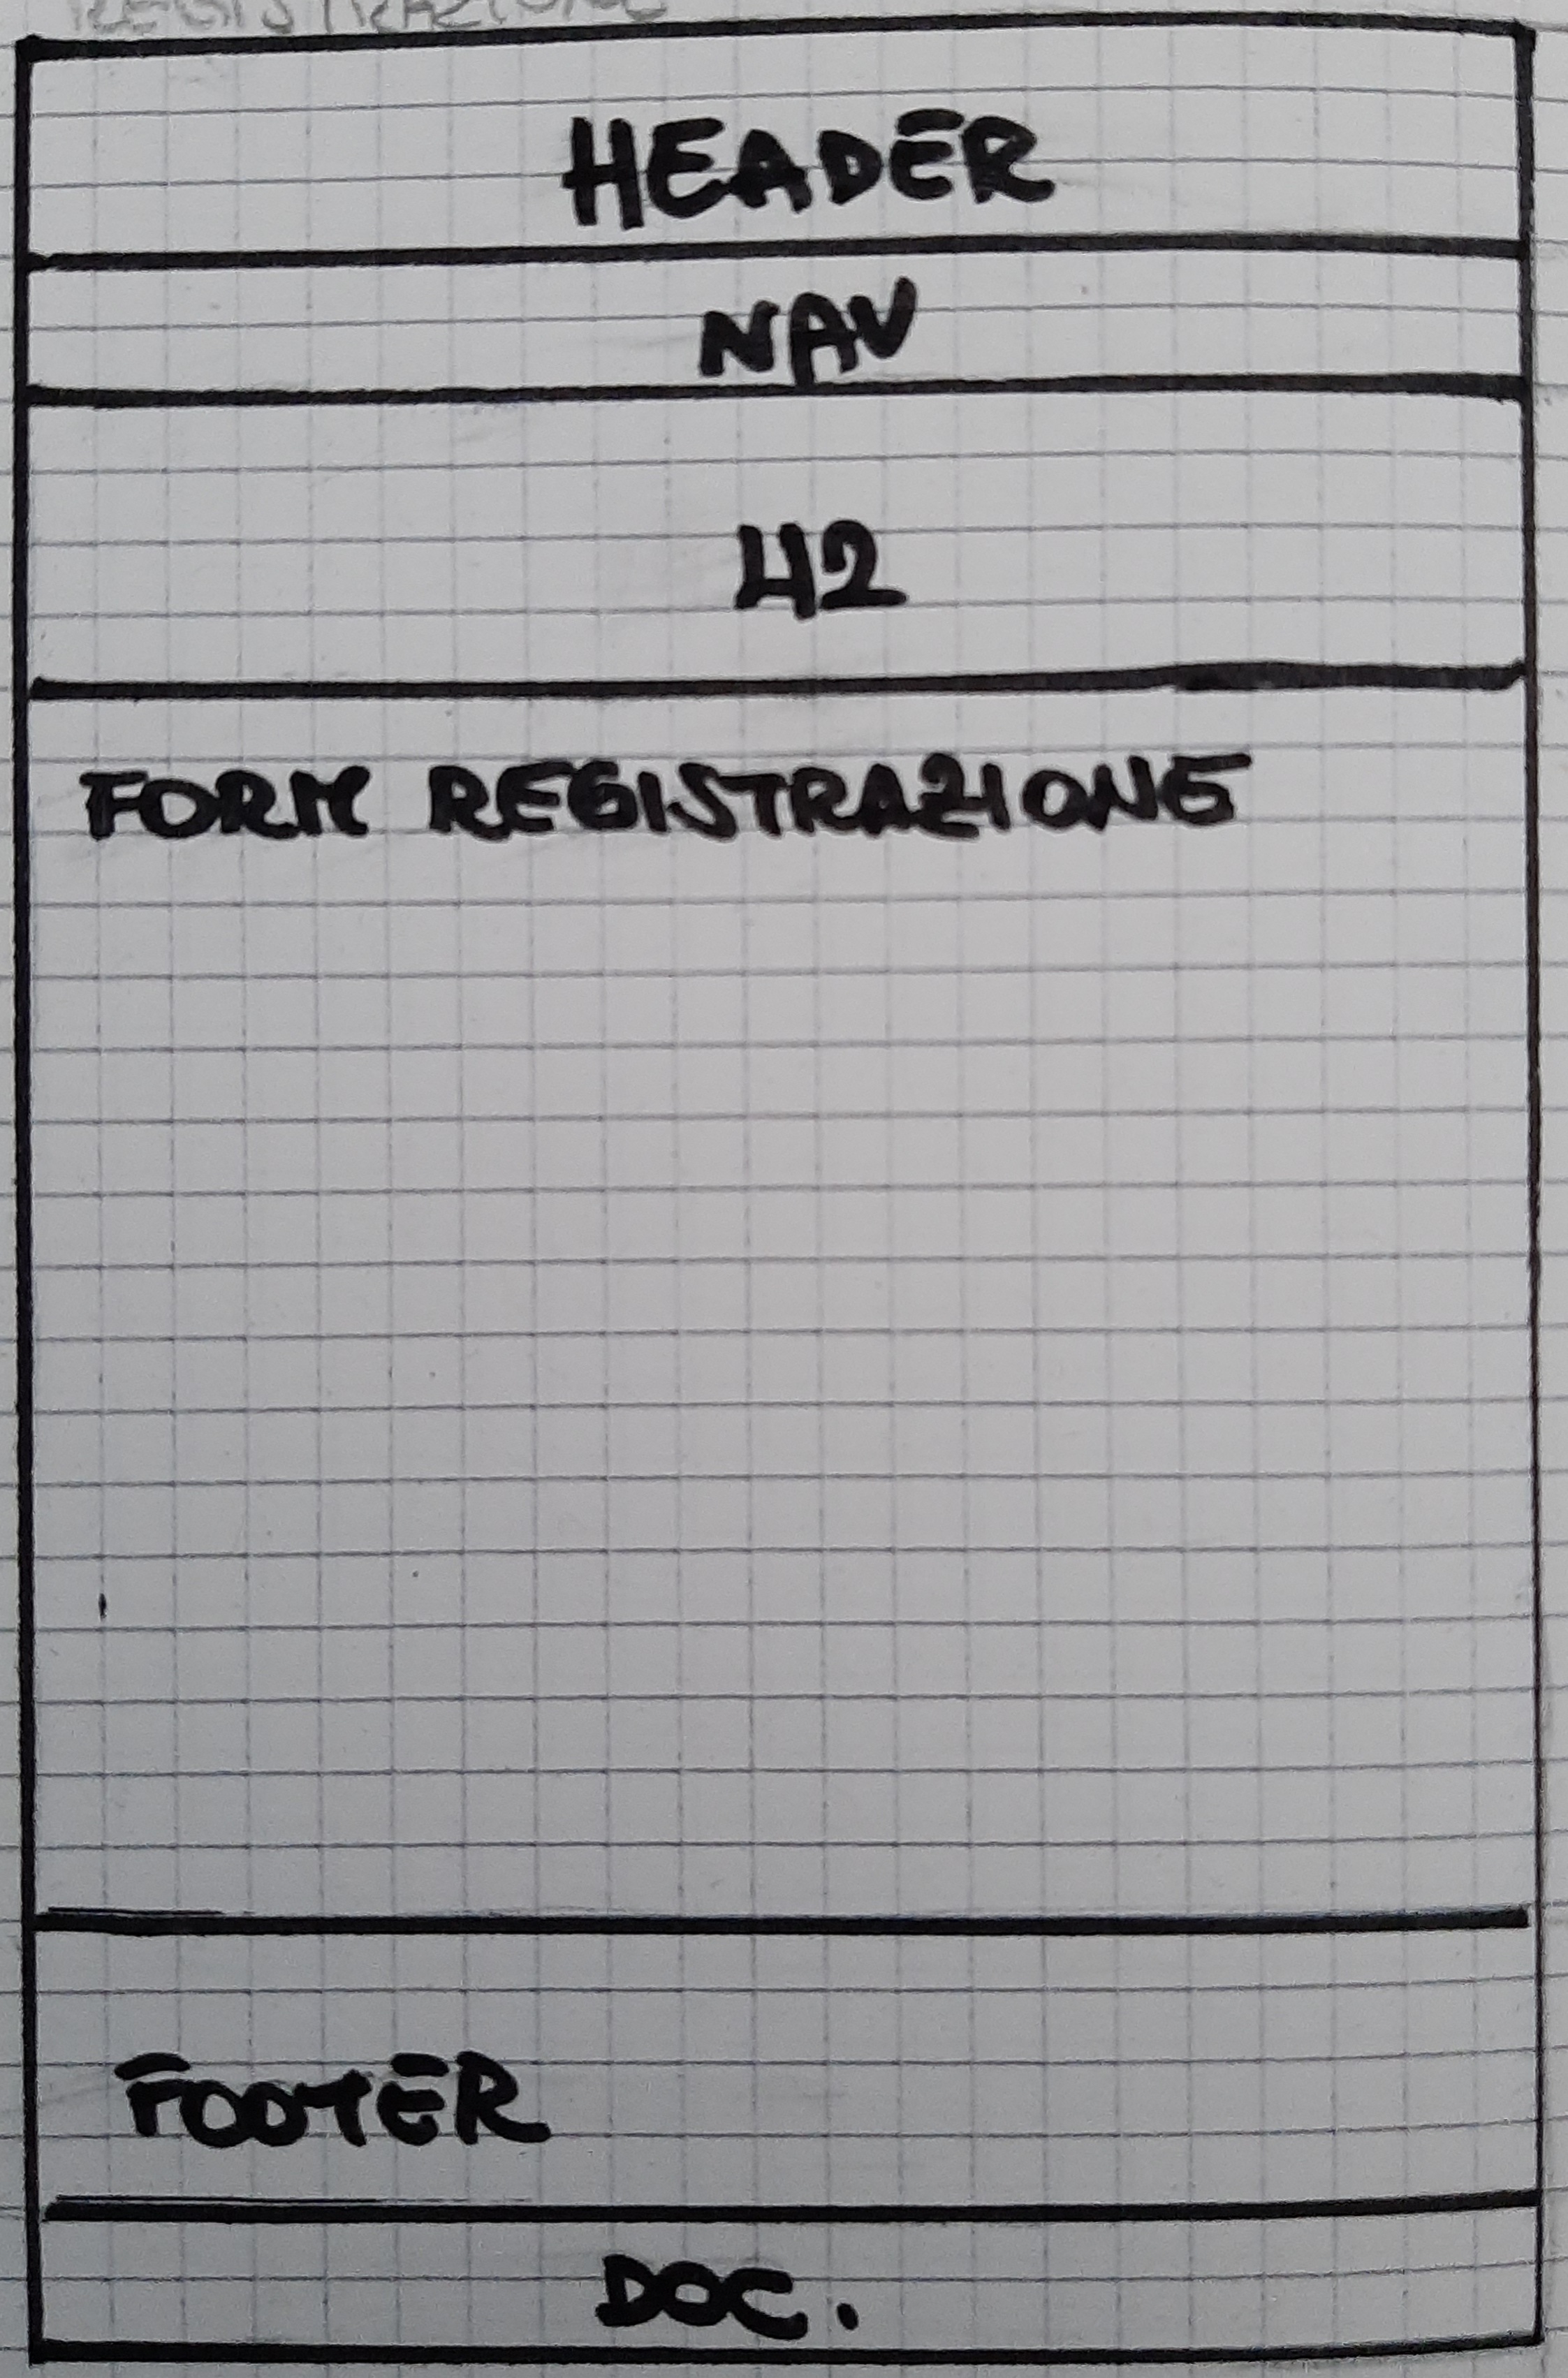 REGISTRAZIONE
HEADER
NAV
H2
FORM REGISTRAZIONE
FOOTER
DOC.